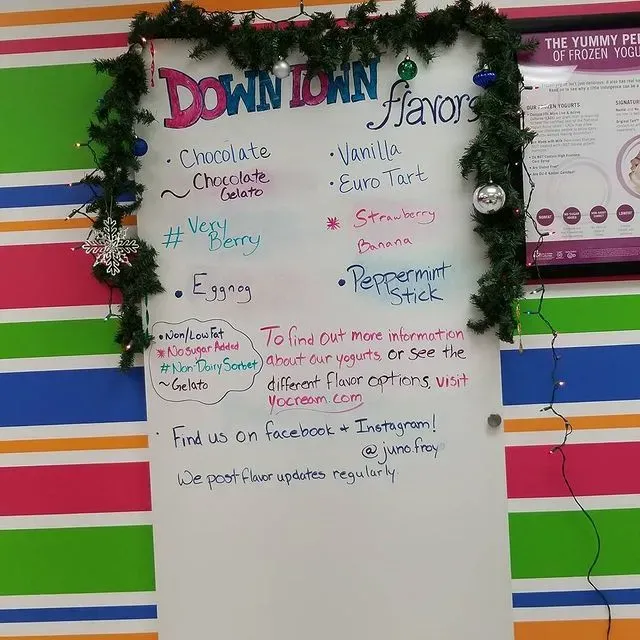 DOWNTOWN
flavors
• Chocolate
~ Chocolate
Gelato
# Very
Berry
• Eggnog
• Vanilla
• Euro Tart
* Strawberry
Banana
• Peppermint
Stick
• Non/Low Fat
* No Sugar Added
# Non-Dairy Sorbet
~ Gelato
To find out more information
about our yogurts, or see the
different flavor options, visit
yocream.com
Find us on facebook + Instagram!
@juno.froy
We post flavor updates regularly
THE YUMMY PE
OF FROZEN YOGU
OUR FROZEN YOGURTS
SIGNAT